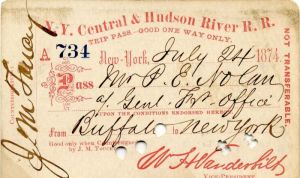 N.Y. Central & Hudson River R. R.
TRIP PASS—GOOD ONE WAY ONLY.
A 734
New-York, July 24 1874
Pass Mr P. E. Nolan
Genl. Frt. Office
UPON THE CONDITIONS ENDORSED HEREON
From Buffalo to New York
Good only when Countersigned
by J. M. TOUCEY
W H Vanderbilt
VICE-PRESIDENT
NOT TRANSFERABLE
J M Toucey